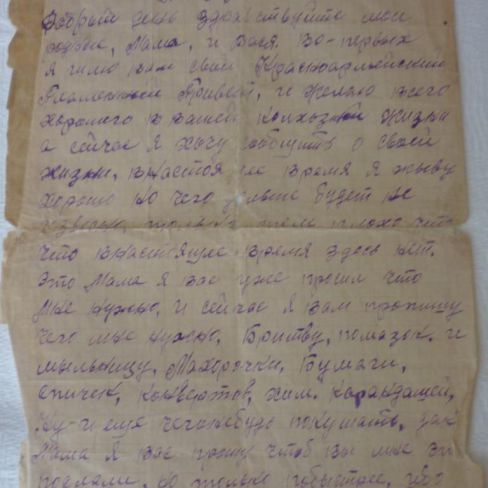 Добрый день здравствуйте мои
Мама, и Вася. Во-первых
я шлю Вам свой Красноармейский
Пламенный Привет, и желаю всего
хорошего в вашей колхозной жизни
а сейчас я хочу сообщить о своей
жизни, в настоящее время я жыву
хорошо но чего дальше будет не
плохо что
что в настоящее время здесь нет.
Это Мама я вас уже просил что
мне нужно, и сейчас я вам пропишу
чего мне нужно. Бритву, помазок, и
мыльницу, Махорочки, Бумаги,
спичек, конвертов, хим. карандашей,
Ну-и еще чегонебудь покушать, так
Мама я вас прошу чтоб вы мне
но только побыстрее,